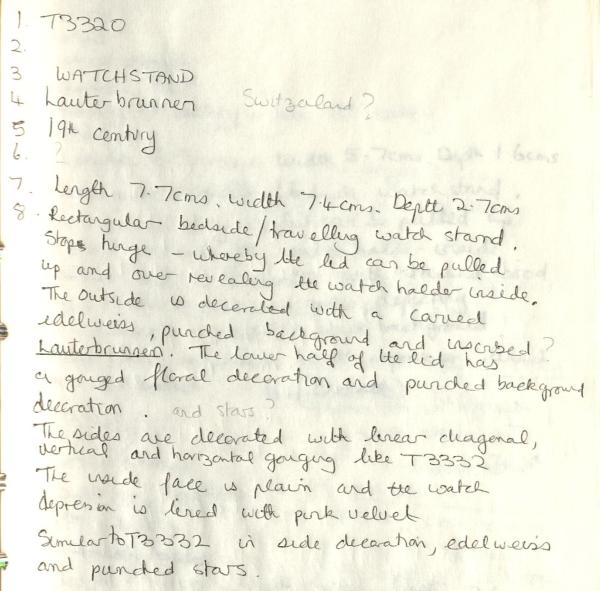 1. T3320
2.
3 WATCHSTAND
4 Lauterbrunnen Switzerland?
5 19th century
6. ?
7. Length 7.7cms. width 7.4cms. Depth 2.7cms
8. Rectangular bedside/travelling watch stand.
Stops hinge – whereby the lid can be pulled
up and over revealing the watch holder inside.
The outside is decorated with a carved
edelweiss, punched background and inscribed ?
Lauterbrunnen. The lower half of the lid has
a gouged floral decoration and punched background
decoration. and stars?
The sides are decorated with linear diagonal,
vertical and horizontal gouging like T3332
The inside face is plain and the watch
depression is lined with pink velvet
Similar to T3332 in side decoration, edelweiss
and punched stars.